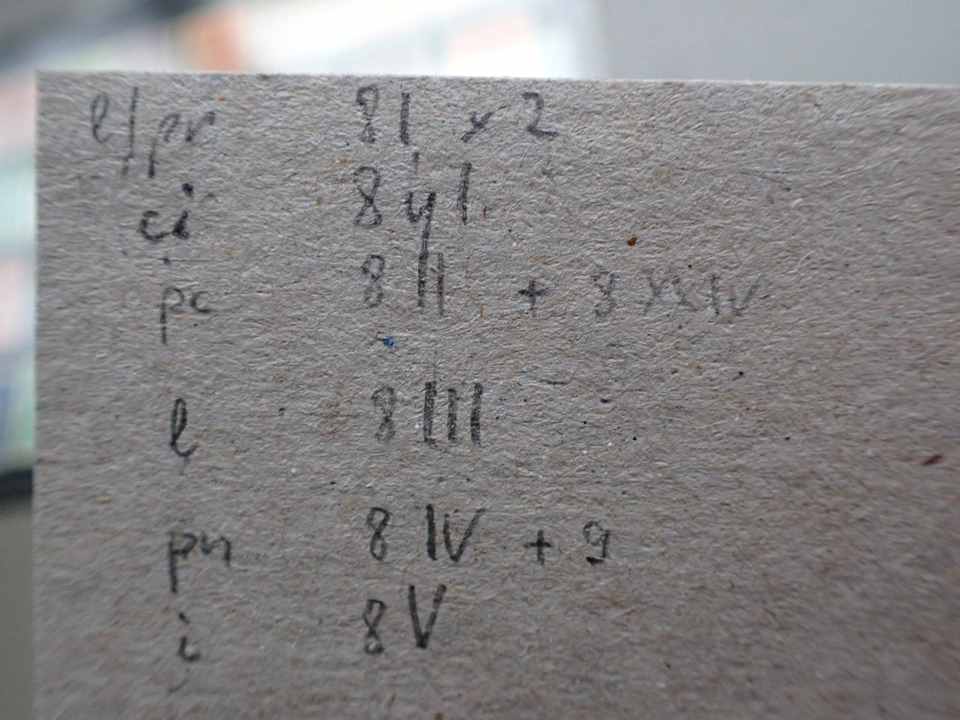 e/pr 8I x 2
ci 8 y I
pc 8 II + 8 XXIV
l 8 III
pn 8 IV + 9
i 8 V